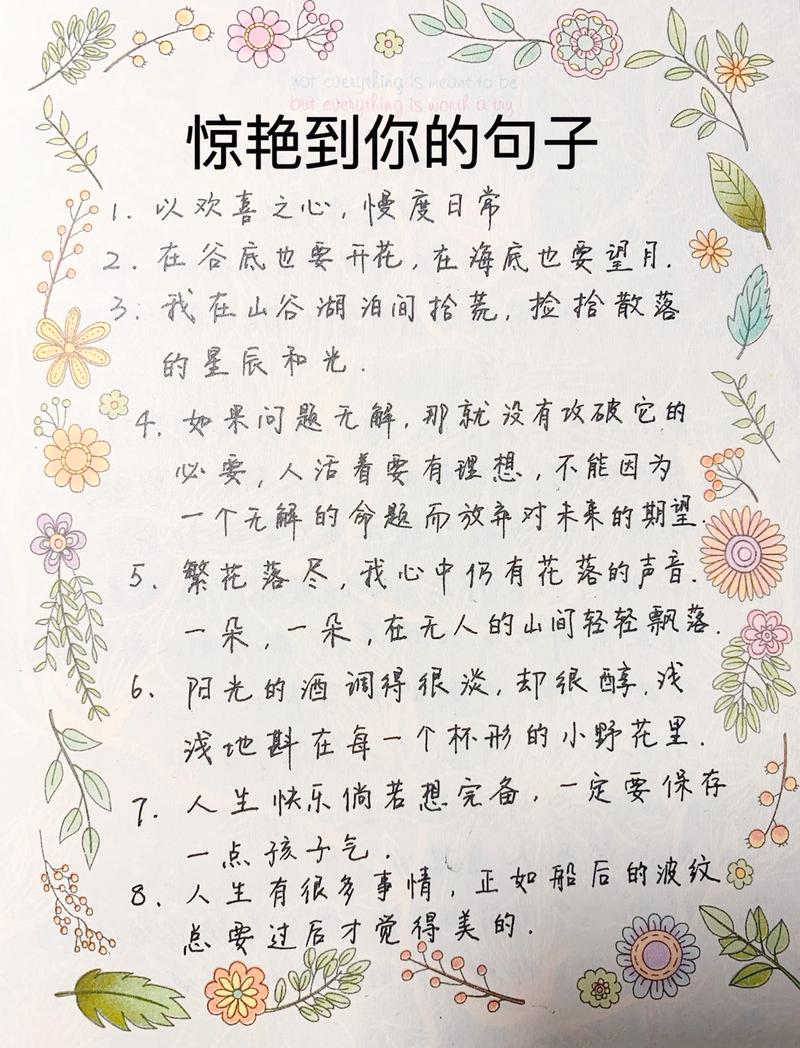 not everything is meant to be
but everything is worth a try
惊艳到你的句子
1. 以欢喜之心,慢度日常
2. 在谷底也要开花,在海底也要望月.
3. 我在山谷湖泊间拾荒,捡拾散落
的星辰和光.
4. 如果问题无解,那就没有攻破它的
必要,人活着要有理想,不能因为
一个无解的命题而放弃对未来的期望.
5. 繁花落尽,我心中仍有花落的声音.
一朵,一朵,在无人的山间轻轻飘落.
6. 阳光的酒调得很淡,却很醇,浅
浅地斟在每一个杯形的小野花里.
7. 人生快乐倘若想完备,一定要保存
一点孩子气.
8. 人生有很多事情,正如船后的波纹
总要过后才觉得美的.